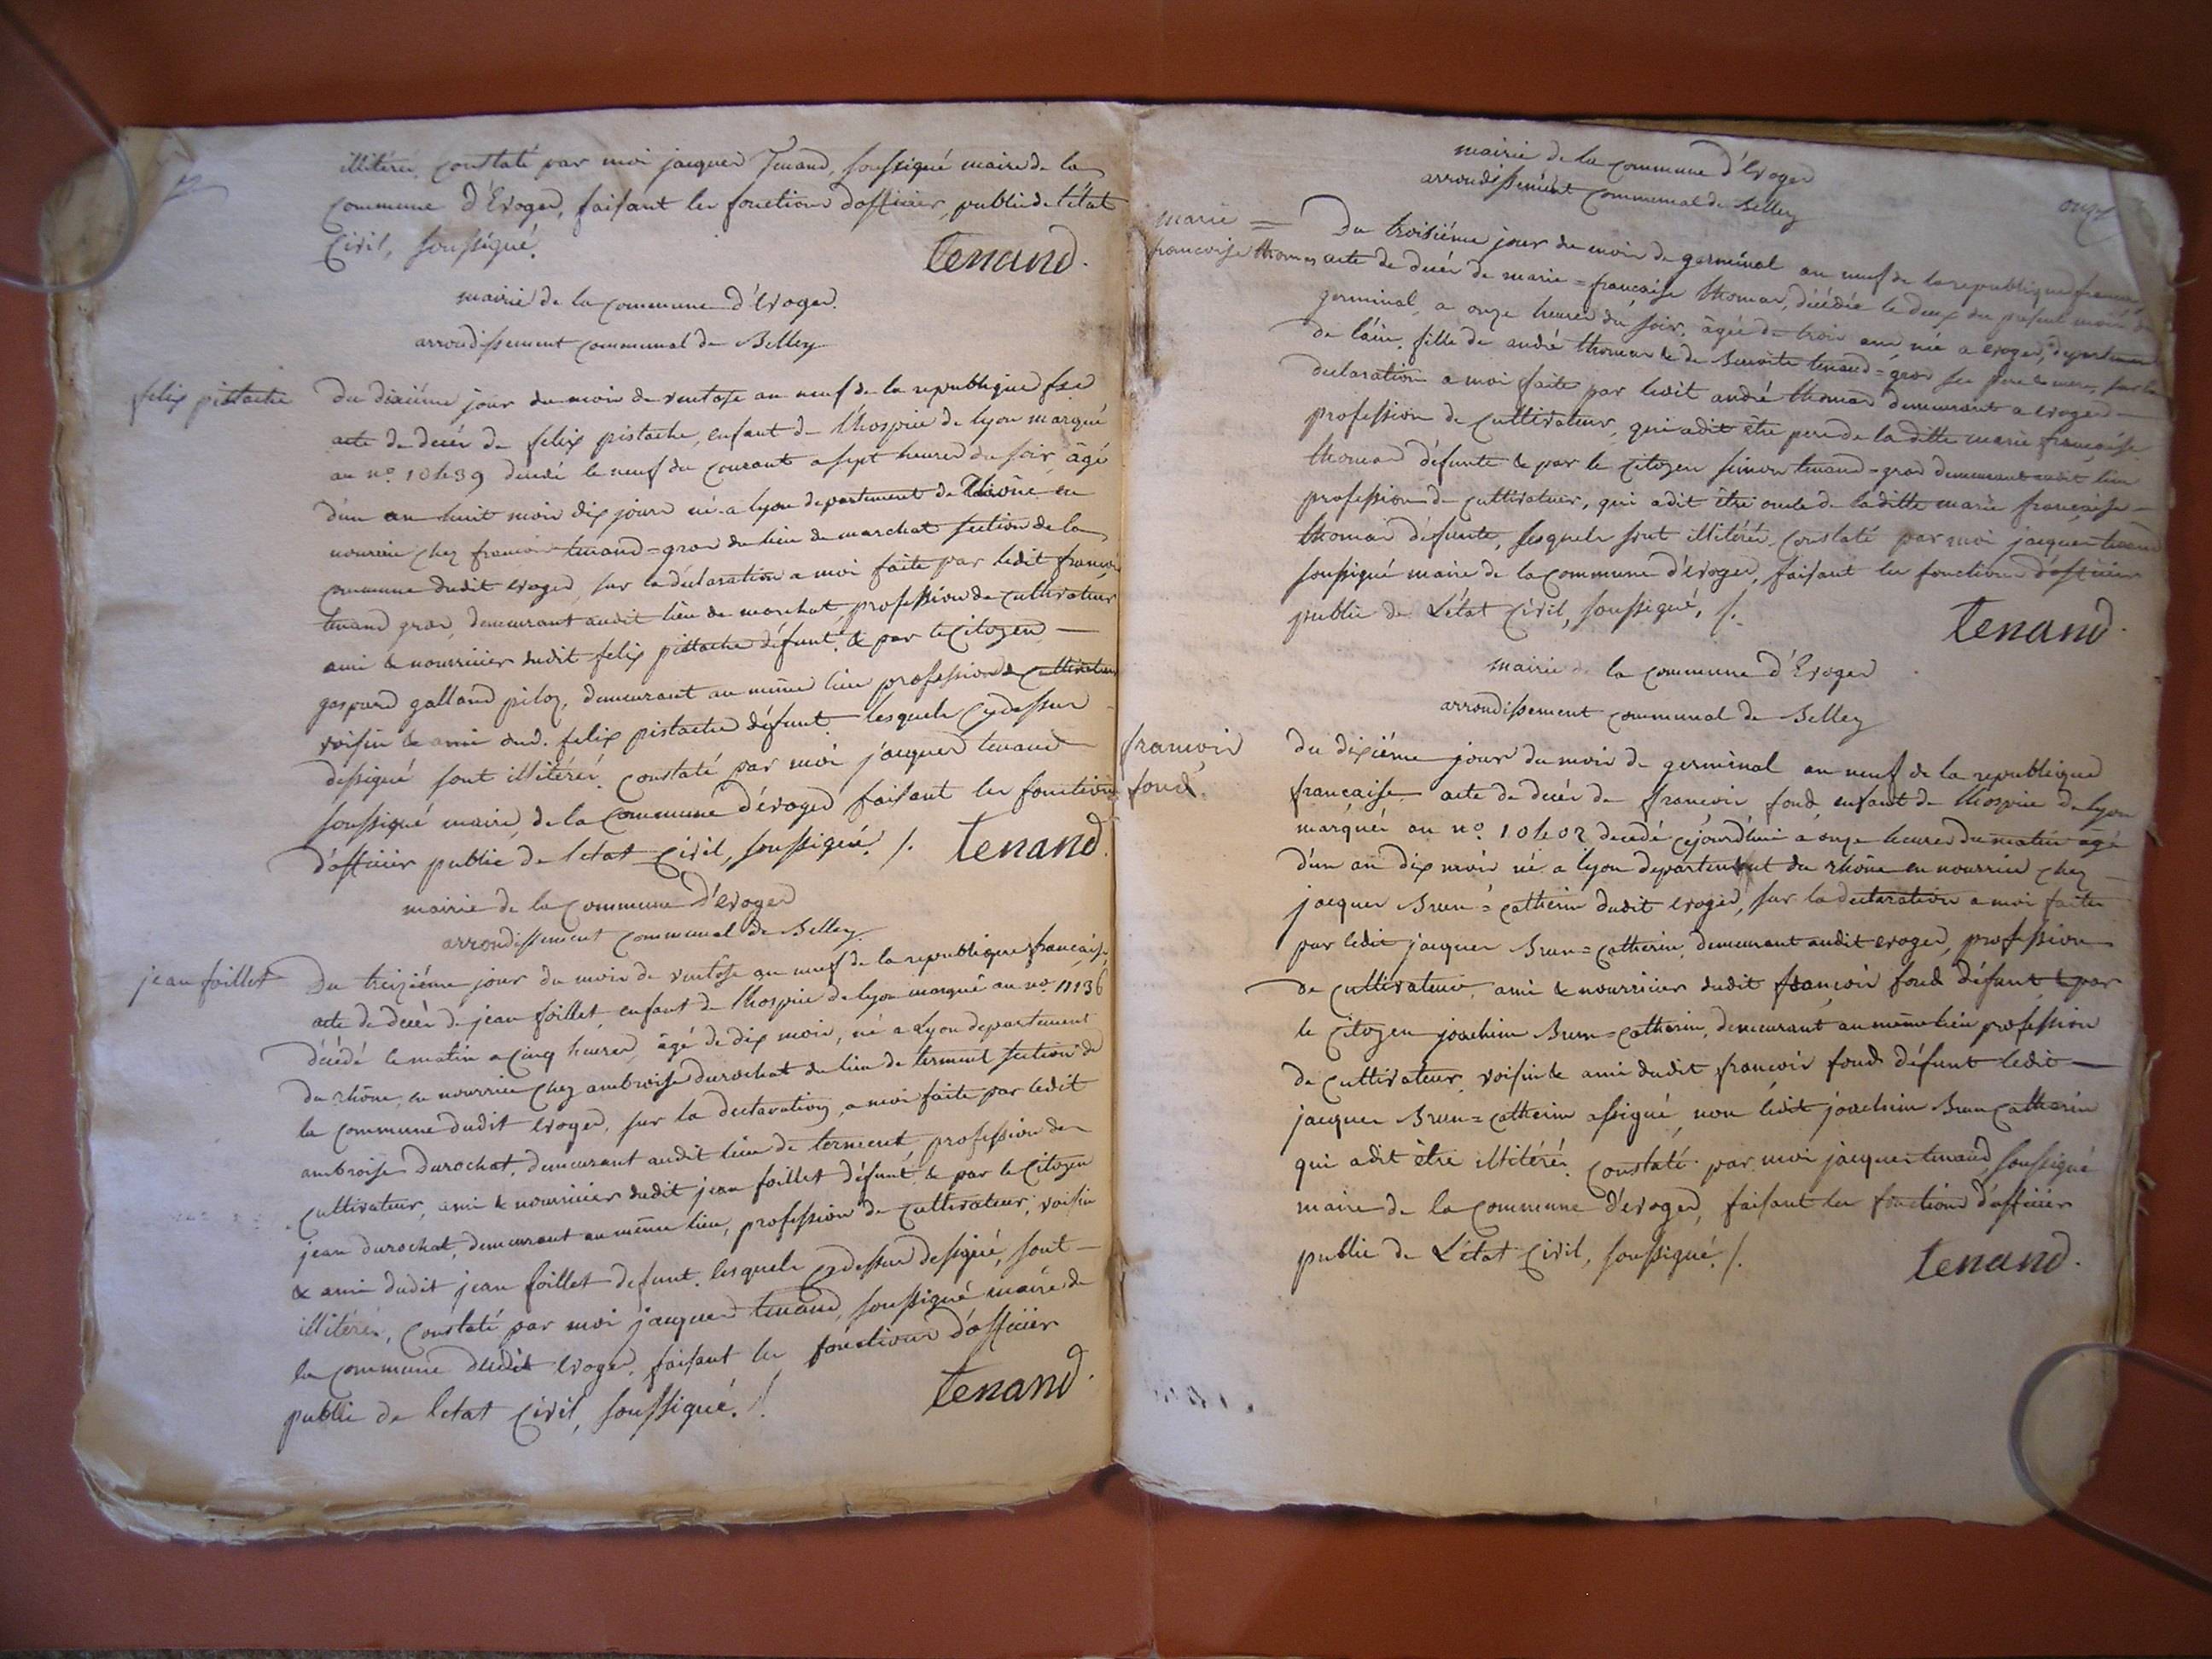 illitérés, constaté par moi jacques Tenand, soussigné maire de la
commune d'Evoges, faisant les fonctions d'officier public de l'état
Civil, soussigné.
tenand.
mairie de la commune d'Evoges.
arrondissement communal de Belley
felix pistache
du dixiéme jour du mois de ventose an neuf de la republique fse
acte de decès de felix pistache, enfant de l'hospice de lyon marqué
au no. 10439 decédé le neuf du courant a sept heures du soir, âgé
d'un an huit mois dix jours né a lyon departement du Rhône en
nourrice chez francois tenand=gros du lieu de marchat section de la
commune dudit evoges, sur la déclaration a moi faite par ledit francois
tenand gros, demeurant audit lieu de marchat, profession de cultivateur
ami & nourricier dudit felix pistache défunt. & par le Citoyen
gaspard galland piloz, demeurant au même lieu profession de cultivateur
voisin & ami dud. felix pistache défunt lesquels cydessus
dessigné sont illitérés constaté par moi jacques tenand
soussigné maire de la commune d'évoges faisant les fonctions
d'officier public de letat Civil, soussigné /.
tenand.
mairie de la commune d'évoges
arrondissement communal de Belley.
jean foillet
Du treiziéme jour du mois de ventose an neuf de la republique francaise,
acte de decès de jean foillet, enfant de l'hospice de lyon marqué au no. 11136
décédé le matin a cinq heures, âgé de dix mois, né a Lyon departement
du rhône, en nourrice chez ambroise durochat du lieu de terment section de
la commune dudit evoges, sur la declaration, a moi faite par ledit
ambroise durochat, demeurant audit lieu de terment, profession de
cultivateur, ami & nourricier dudit jean foillet défunt. & par le Citoyen
jean durochat, demeurant au même lieu, profession de cultivateur, voisin
& ami dudit jean foillet defunt. lesquels cydessus designé, sont
illitérés, constaté par moi jacques tenand, soussigné maire de
la commune dudit evoges, faisant les fonctions d'officier
public de letat Civil, soussigné. /.
tenand.
onze
mairie de la commune d'Evoges
arrondissement communal de Belley
marie =
francoise thomas
Du troisiéme jour du mois de germinal an neuf de la republique francaise
acte de decès de marie=francaise thomas, décédée le deux du présent mois de
germinal, a onze heures du soir, âgée de trois ans, née a evoges, departement
de l'ain, fille de andré thomas & de Benoite tenand=gros ses pere & mere, sur la
declaration a moi faite par ledit andré thomas demeurant a evoges
profession de cultivateur, qui a dit être pere de la ditte marie francaise
thomas défunte & par le citoyen simon tenand=gros demeurant audit lieu
profession de cultivateur, qui a dit être oncle de laditte marie francaise
thomas défunte, lesquels sont illitérés, constaté par moi jacques tenand
soussigné maire de la commune d'évoges, faisant les fonctions d'officier
public de L'état Civil, soussigné, /.
tenand.
mairie de la commune d'Evoges
arrondissement communal de Belley
francois
fond.
du dixiéme jour du mois de germinal an neuf de la republique
francaise acte de decès de francois fond enfant de l'hospice de lyon
marquée au no. 10402 decedé cejourd'hui a onze heures du matin agé
d'un an dix mois né a lyon departement du rhône en nourrice chez
jacques Brun=catherin dudit evoges, sur la declaration a moi faite
par ledit jacques Brun=catherin, demeurant audit evoges, profession
de cultivateur, ami & nourricier dudit francois fond défunt & par
le Citoyen joachim Brun=catherin, demeurant au même lieu profession
de cultivateur, voisin & ami dudit francois fond défunt ledit
jacques Brun=catherin a signé, non ledit joachim Brun catherin
qui a dit être illitéré, constaté par moi jacques tenand, soussigné
maire de la commune d'evoges, faisant les fonctions d'officier
public de L'état Civil, soussigné. /.
tenand.